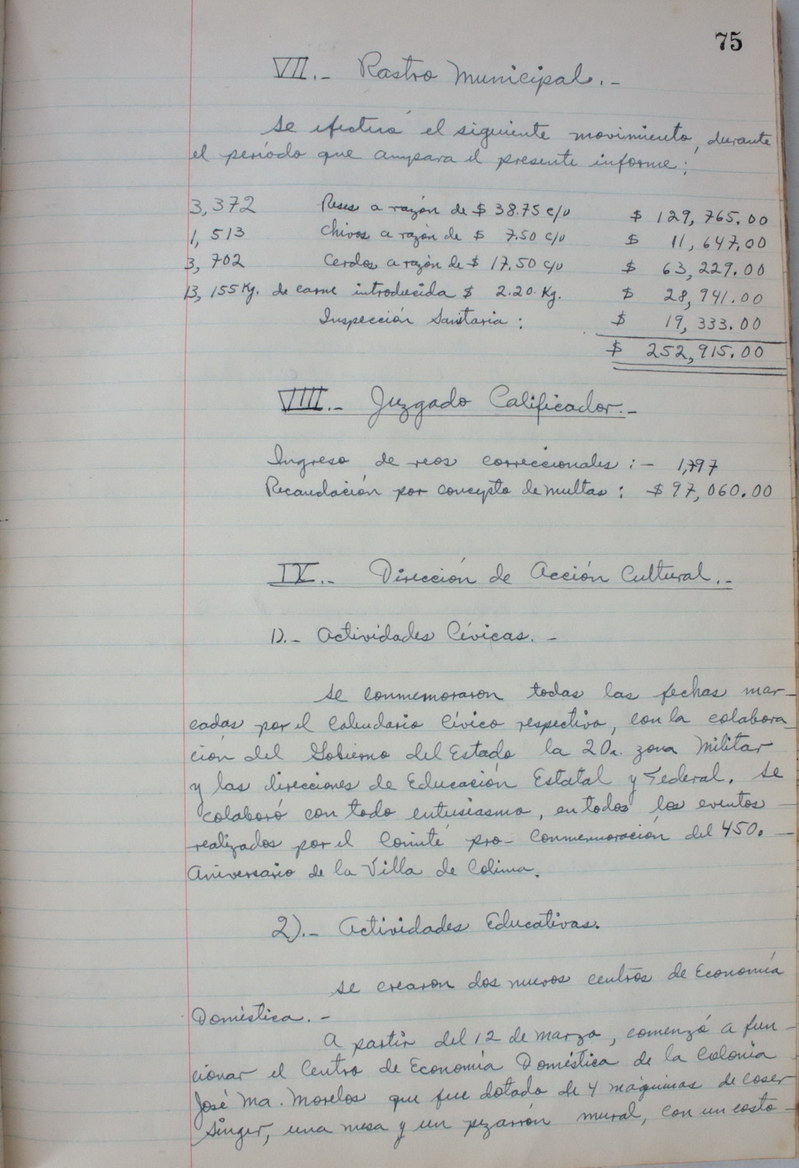 75
VII.- Rastro Municipal.-
Se efectuó el siguiente movimiento, durante
el período que ampara el presente informe:
3,372 Reses a razón de $ 38.75 c/u $ 129,765.00
1,513 Chivos a razón de $ 7.50 c/u $ 11,647.00
3,702 Cerdos a razón de $ 17.50 c/u $ 63,229.00
13,155 Kg. de carne introducida $ 2.20 Kg. $ 28,941.00
Inspección Sanitaria: $ 19,333.00
$ 252,915.00
VIII.- Juzgado Calificador.-
Ingreso de reos correccionales:- 1,797
Recaudación por concepto de multas: $ 97,060.00
IX.- Dirección de Acción Cultural.-
1).- Actividades Cívicas.-
Se conmemoraron todas las fechas mar-
cadas por el Calendario Cívico respectivo, con la colabora-
ción del Gobierno del Estado la 20a. zona Militar
y las direcciones de Educación Estatal y Federal. Se
colaboró con todo entusiasmo, en todos los eventos
realizados por el Comité pro-Conmemoración del 450.
Aniversario de la Villa de Colima.
2).- Actividades Educativas.
Se crearon dos nuevos centros de Economía
Doméstica.-
A partir del 12 de marzo, comenzó a fun-
cionar el Centro de Economía Doméstica de la Colonia
José Ma. Morelos que fue dotado de 4 máquinas de coser
Singer, una mesa y un pizarrón mural, con un costo